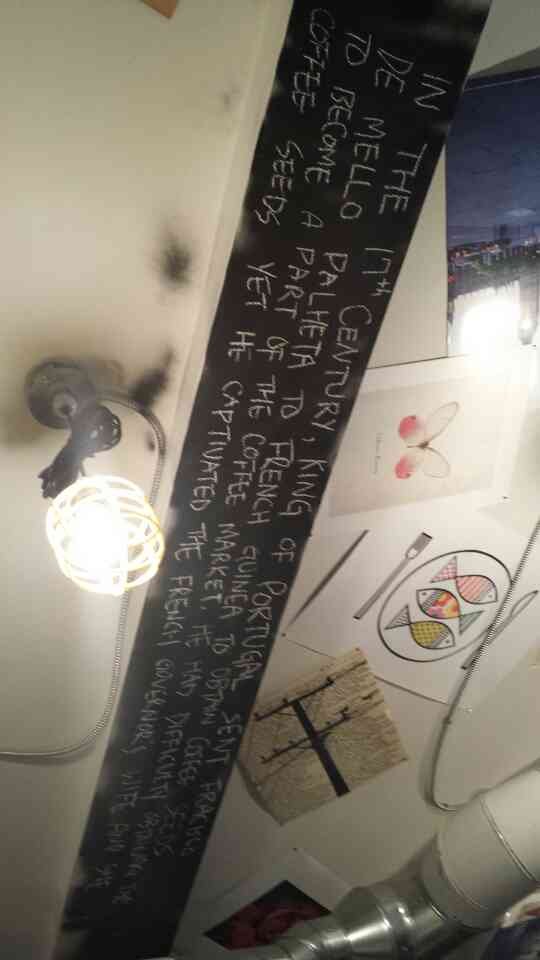 IN THE 17th CENTURY, KING OF PORTUGAL SENT
DE MELLO PALHETA TO FRENCH GUINEA TO OBTAIN COFFEE SEEDS
TO BECOME A PART OF THE COFFEE MARKET. HE HAD DIFFICULTY OBTAINING THE
COFFEE SEEDS YET HE CAPTIVATED THE FRENCH GOVERNOR'S WIFE AND SHE